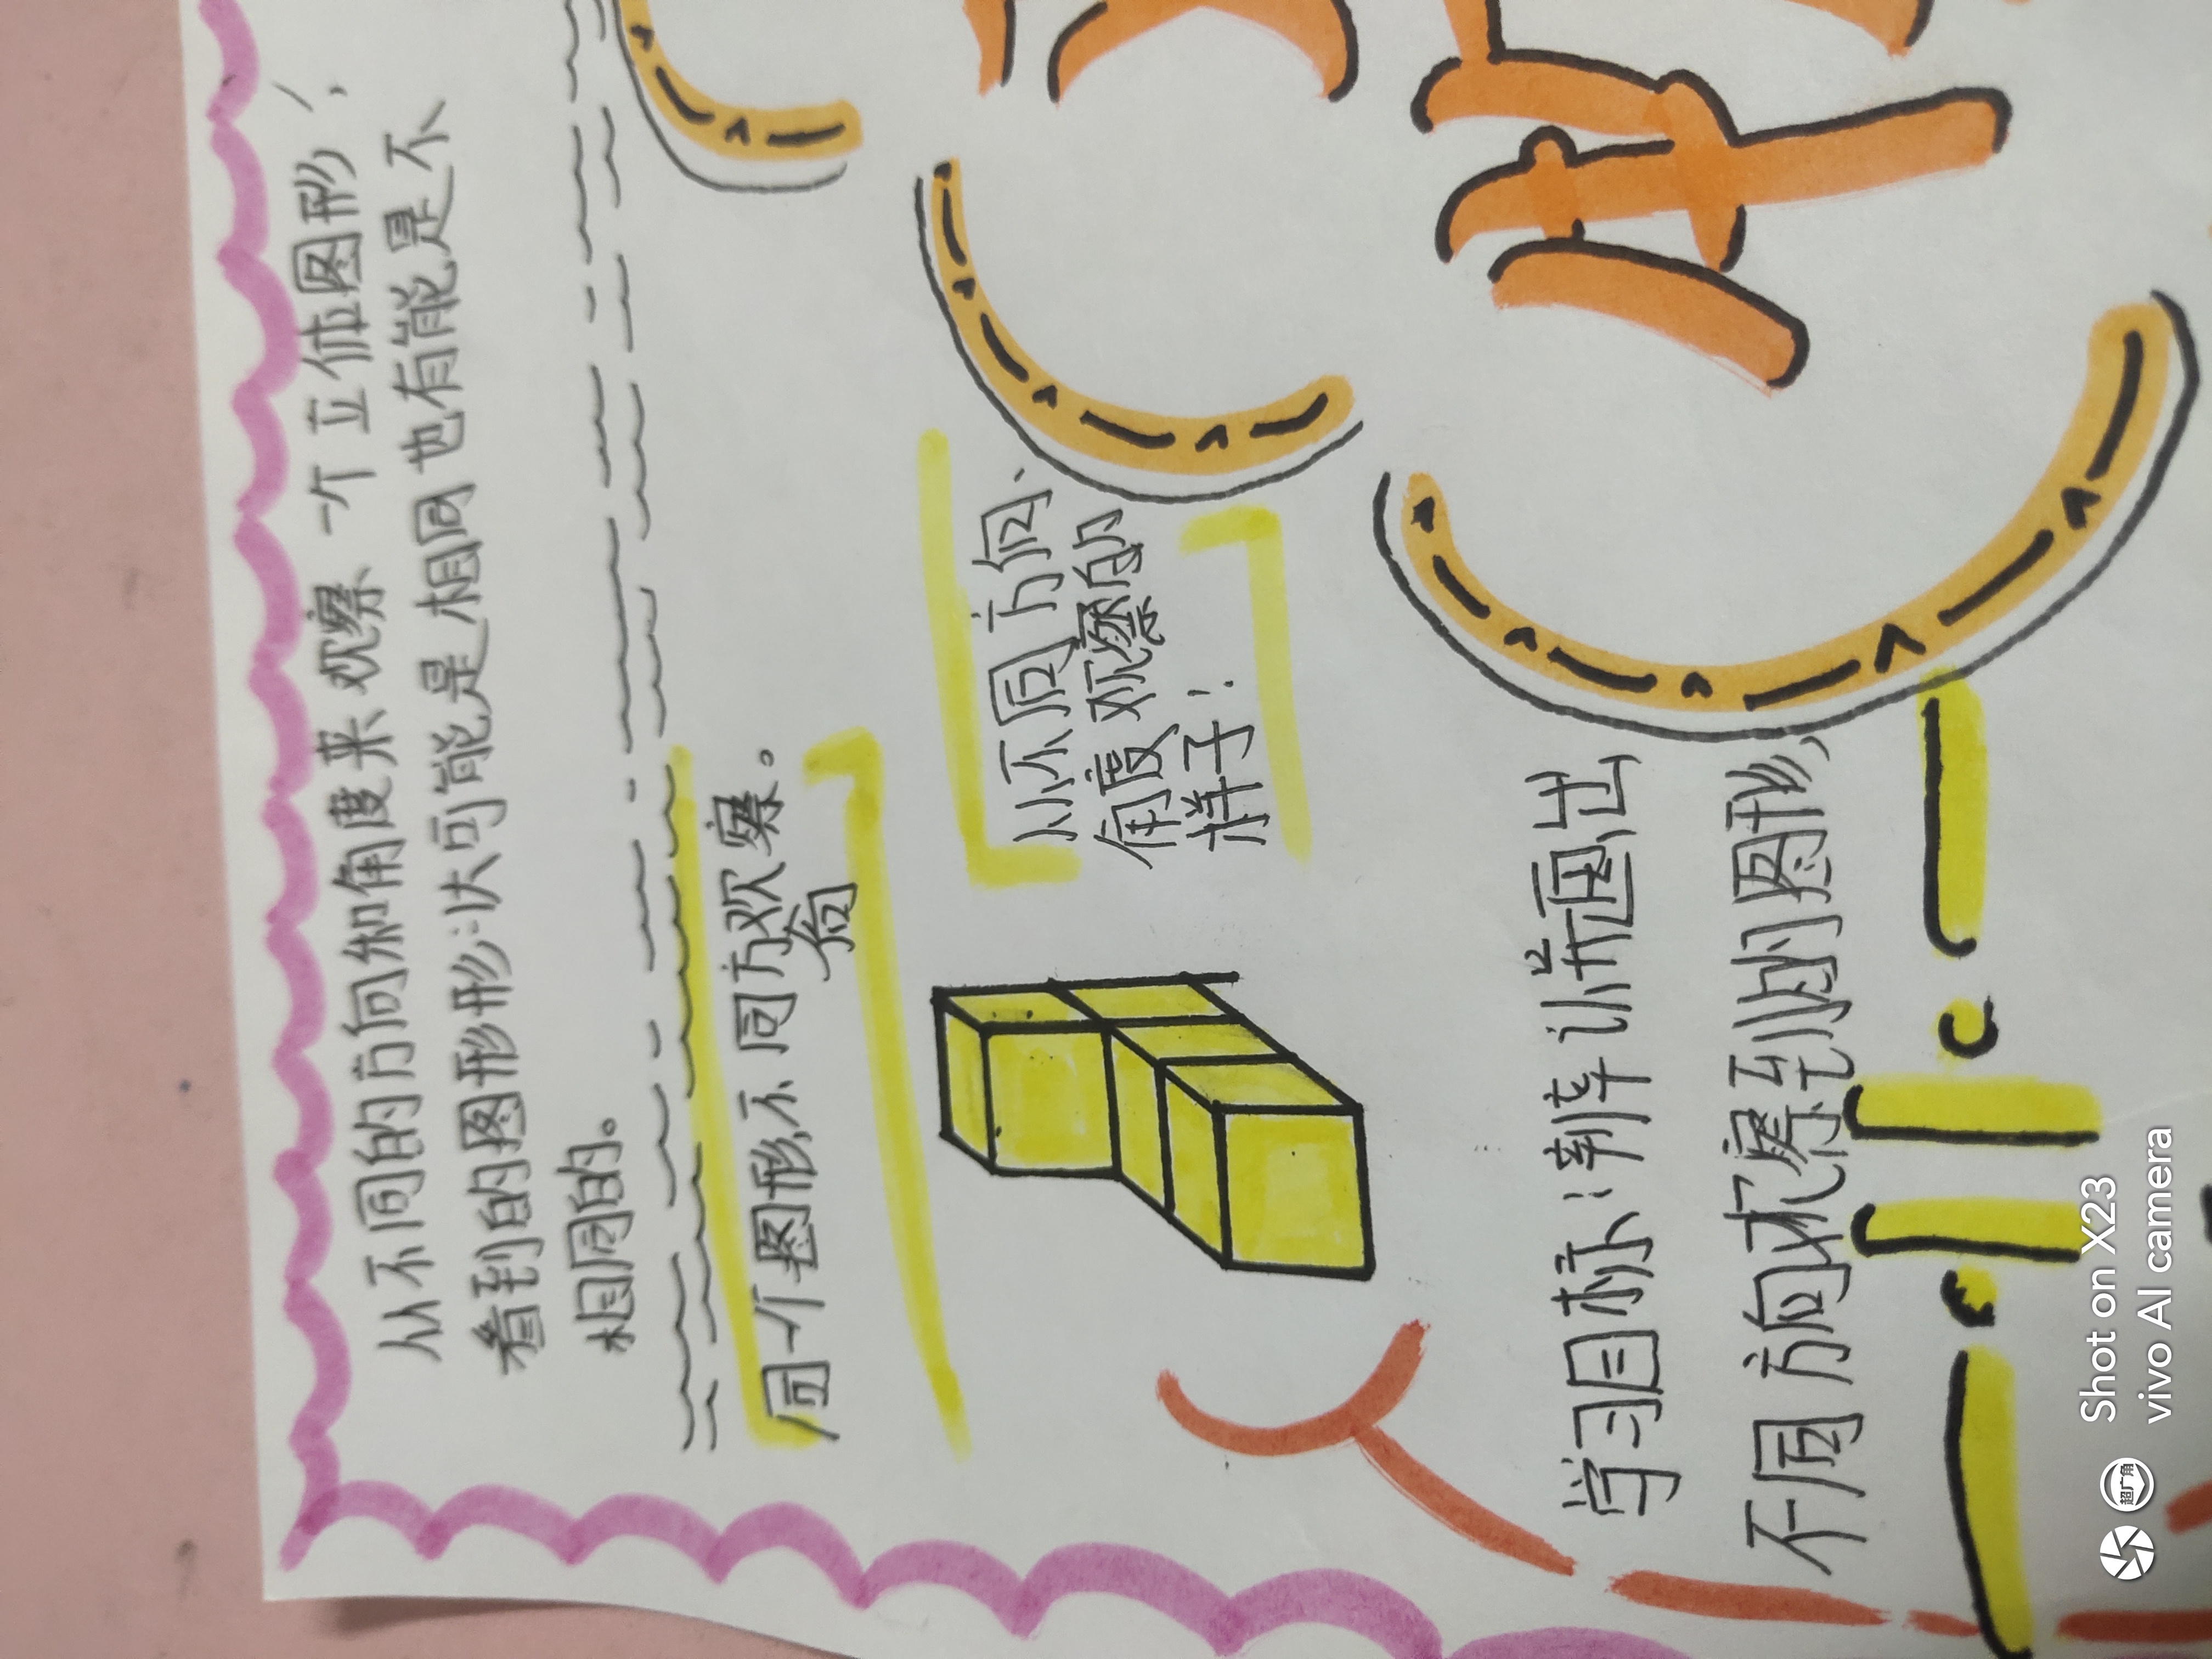 从不同的方向和角度来观察一个立体图形,
看到的图形形状可能是相同也有能是不
相同的。
同一个图形,不同方观察。
向
从不同方向、
角度观察的
样子!
学习目标:辨认并画出
不同方向观察到的图形,
超广角
Shot on X23
vivo AI camera